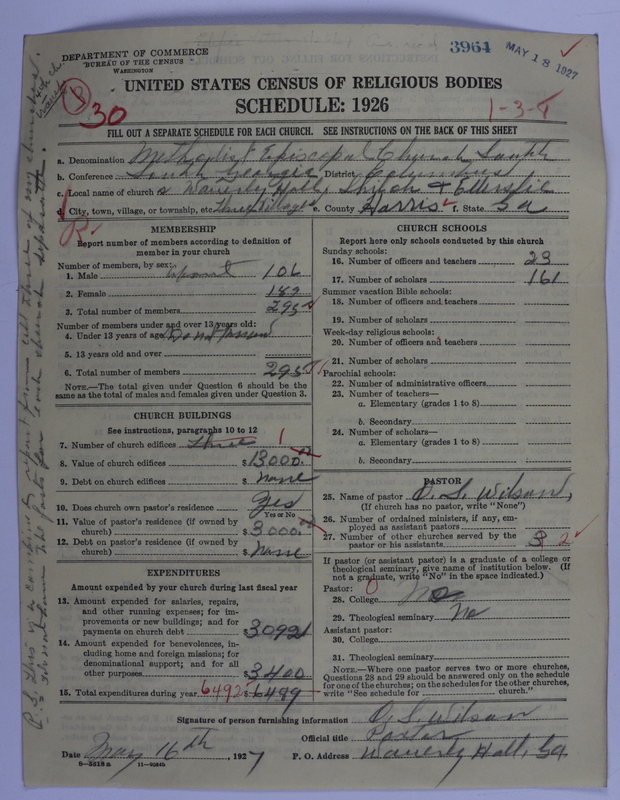 3964
MAY 18 1927
DEPARTMENT OF COMMERCE
BUREAU OF THE CENSUS
WASHINGTON
30
UNITED STATES CENSUS OF RELIGIOUS BODIES
SCHEDULE: 1926
1-3-
FILL OUT A SEPARATE SCHEDULE FOR EACH CHURCH. SEE INSTRUCTIONS ON THE BACK OF THIS SHEET
a. Denomination Methodist Episcopal Church, South
b. Conference South Georgia District Columbus
c. Local name of church Waverly Hall, Shiloh & Ellerslie
d. City, town, village, or township, etc. three villages e. County Harris f. State Ga
MEMBERSHIP
Report number of members according to definition of member in your church
Number of members, by sex:
1. Male about 106
2. Female 189
3. Total number of members 295
Number of members under and over 13 years old:
4. Under 13 years of age Do not know
5. 13 years old and over
6. Total number of members 295
NOTE.—The total given under Question 6 should be the same as the total of males and females given under Question 3.
CHURCH BUILDINGS
See instructions, paragraphs 10 to 12
7. Number of church edifices three 1
8. Value of church edifices $13000.
9. Debt on church edifices $ none
10. Does church own pastor's residence Yes
Yes or No
11. Value of pastor's residence (if owned by church) $3000.
12. Debt on pastor's residence (if owned by church) $ None
EXPENDITURES
Amount expended by your church during last fiscal year
13. Amount expended for salaries, repairs, and other running expenses; for improvements or new buildings; and for payments on church debt $3092
14. Amount expended for benevolences, including home and foreign missions; for denominational support; and for all other purposes $3400
15. Total expenditures during year 6492 $6499
CHURCH SCHOOLS
Report here only schools conducted by this church
Sunday schools:
16. Number of officers and teachers 23
17. Number of scholars 161
Summer vacation Bible schools:
18. Number of officers and teachers
19. Number of scholars
Week-day religious schools:
20. Number of officers and teachers
21. Number of scholars
Parochial schools:
22. Number of administrative officers
23. Number of teachers—
a. Elementary (grades 1 to 8)
b. Secondary
24. Number of scholars—
a. Elementary (grades 1 to 8)
b. Secondary
PASTOR
25. Name of pastor O. S. Wilson,
(If church has no pastor, write "None")
26. Number of ordained ministers, if any, employed as assistant pastors
27. Number of other churches served by the pastor or his assistants 3 2
If pastor (or assistant pastor) is a graduate of a college or theological seminary, give name of institution below. (If not a graduate, write "No" in the space indicated.)
Pastor:
28. College No
29. Theological seminary No
Assistant pastor:
30. College
31. Theological seminary
NOTE.—Where one pastor serves two or more churches, Questions 28 and 29 should be answered only on the schedule for one of the churches; on the schedules for the other churches, write "See schedule for church."
Signature of person furnishing information O. S. Wilson
Official title Pastor
Date May 16th, 1927 P. O. Address Waverly Hall, Ga
8-5818a 11-9084